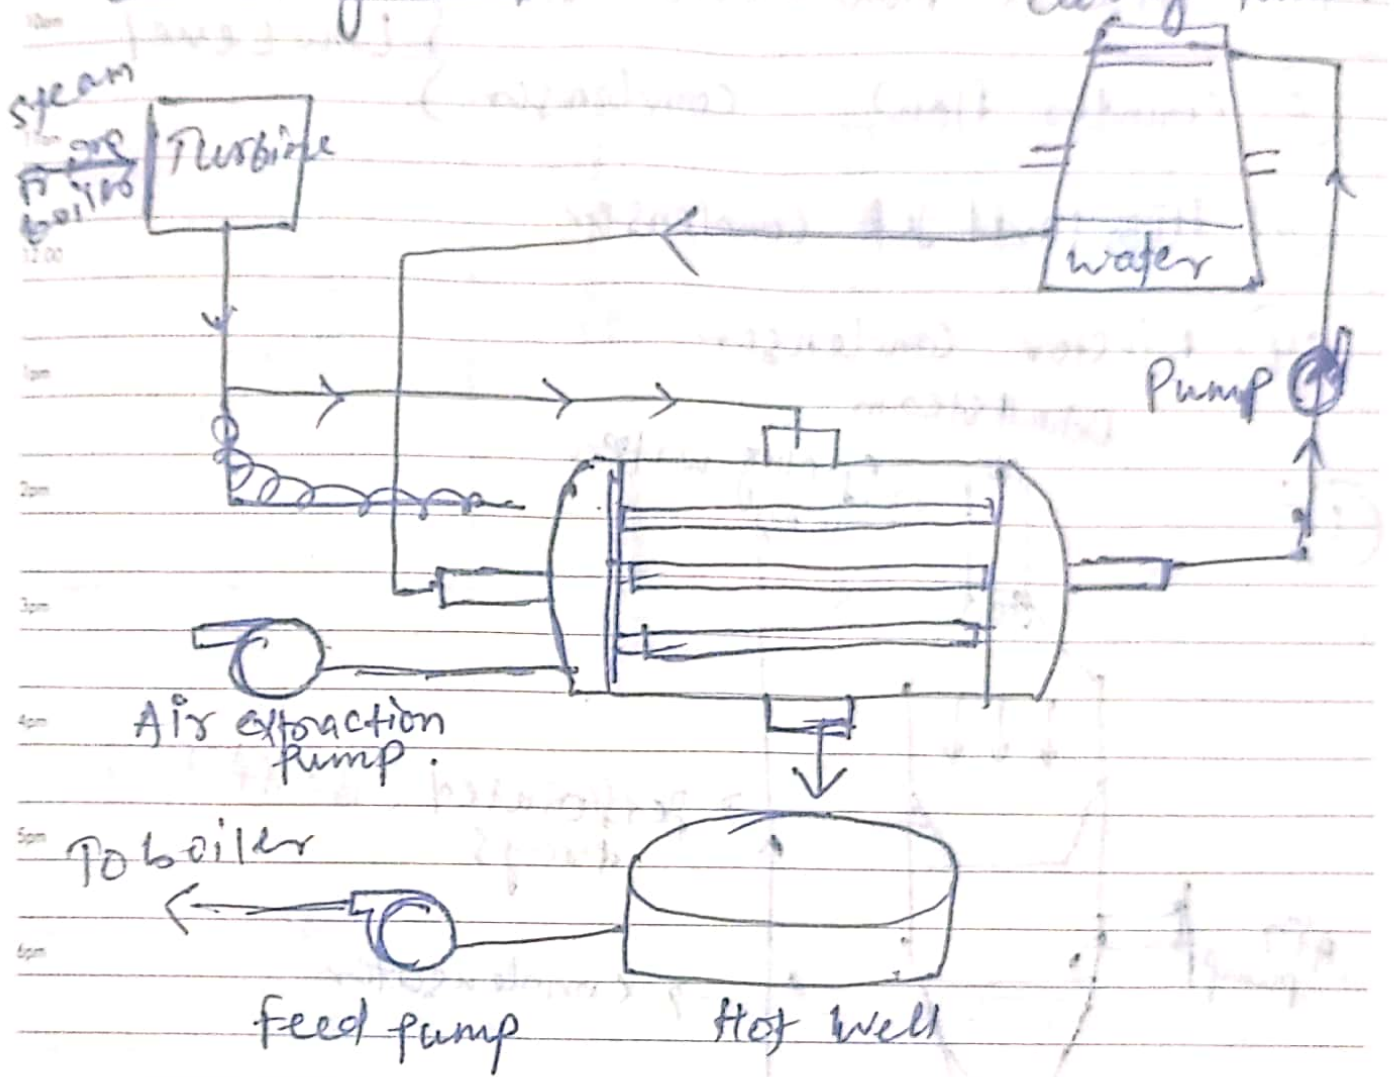 10am
Steam
Turbine
boiler
12:00
water
1pm
Pump
2pm
3pm
Air extraction
pump.
4pm
5pm
To boiler
6pm
feed pump
Hot Well